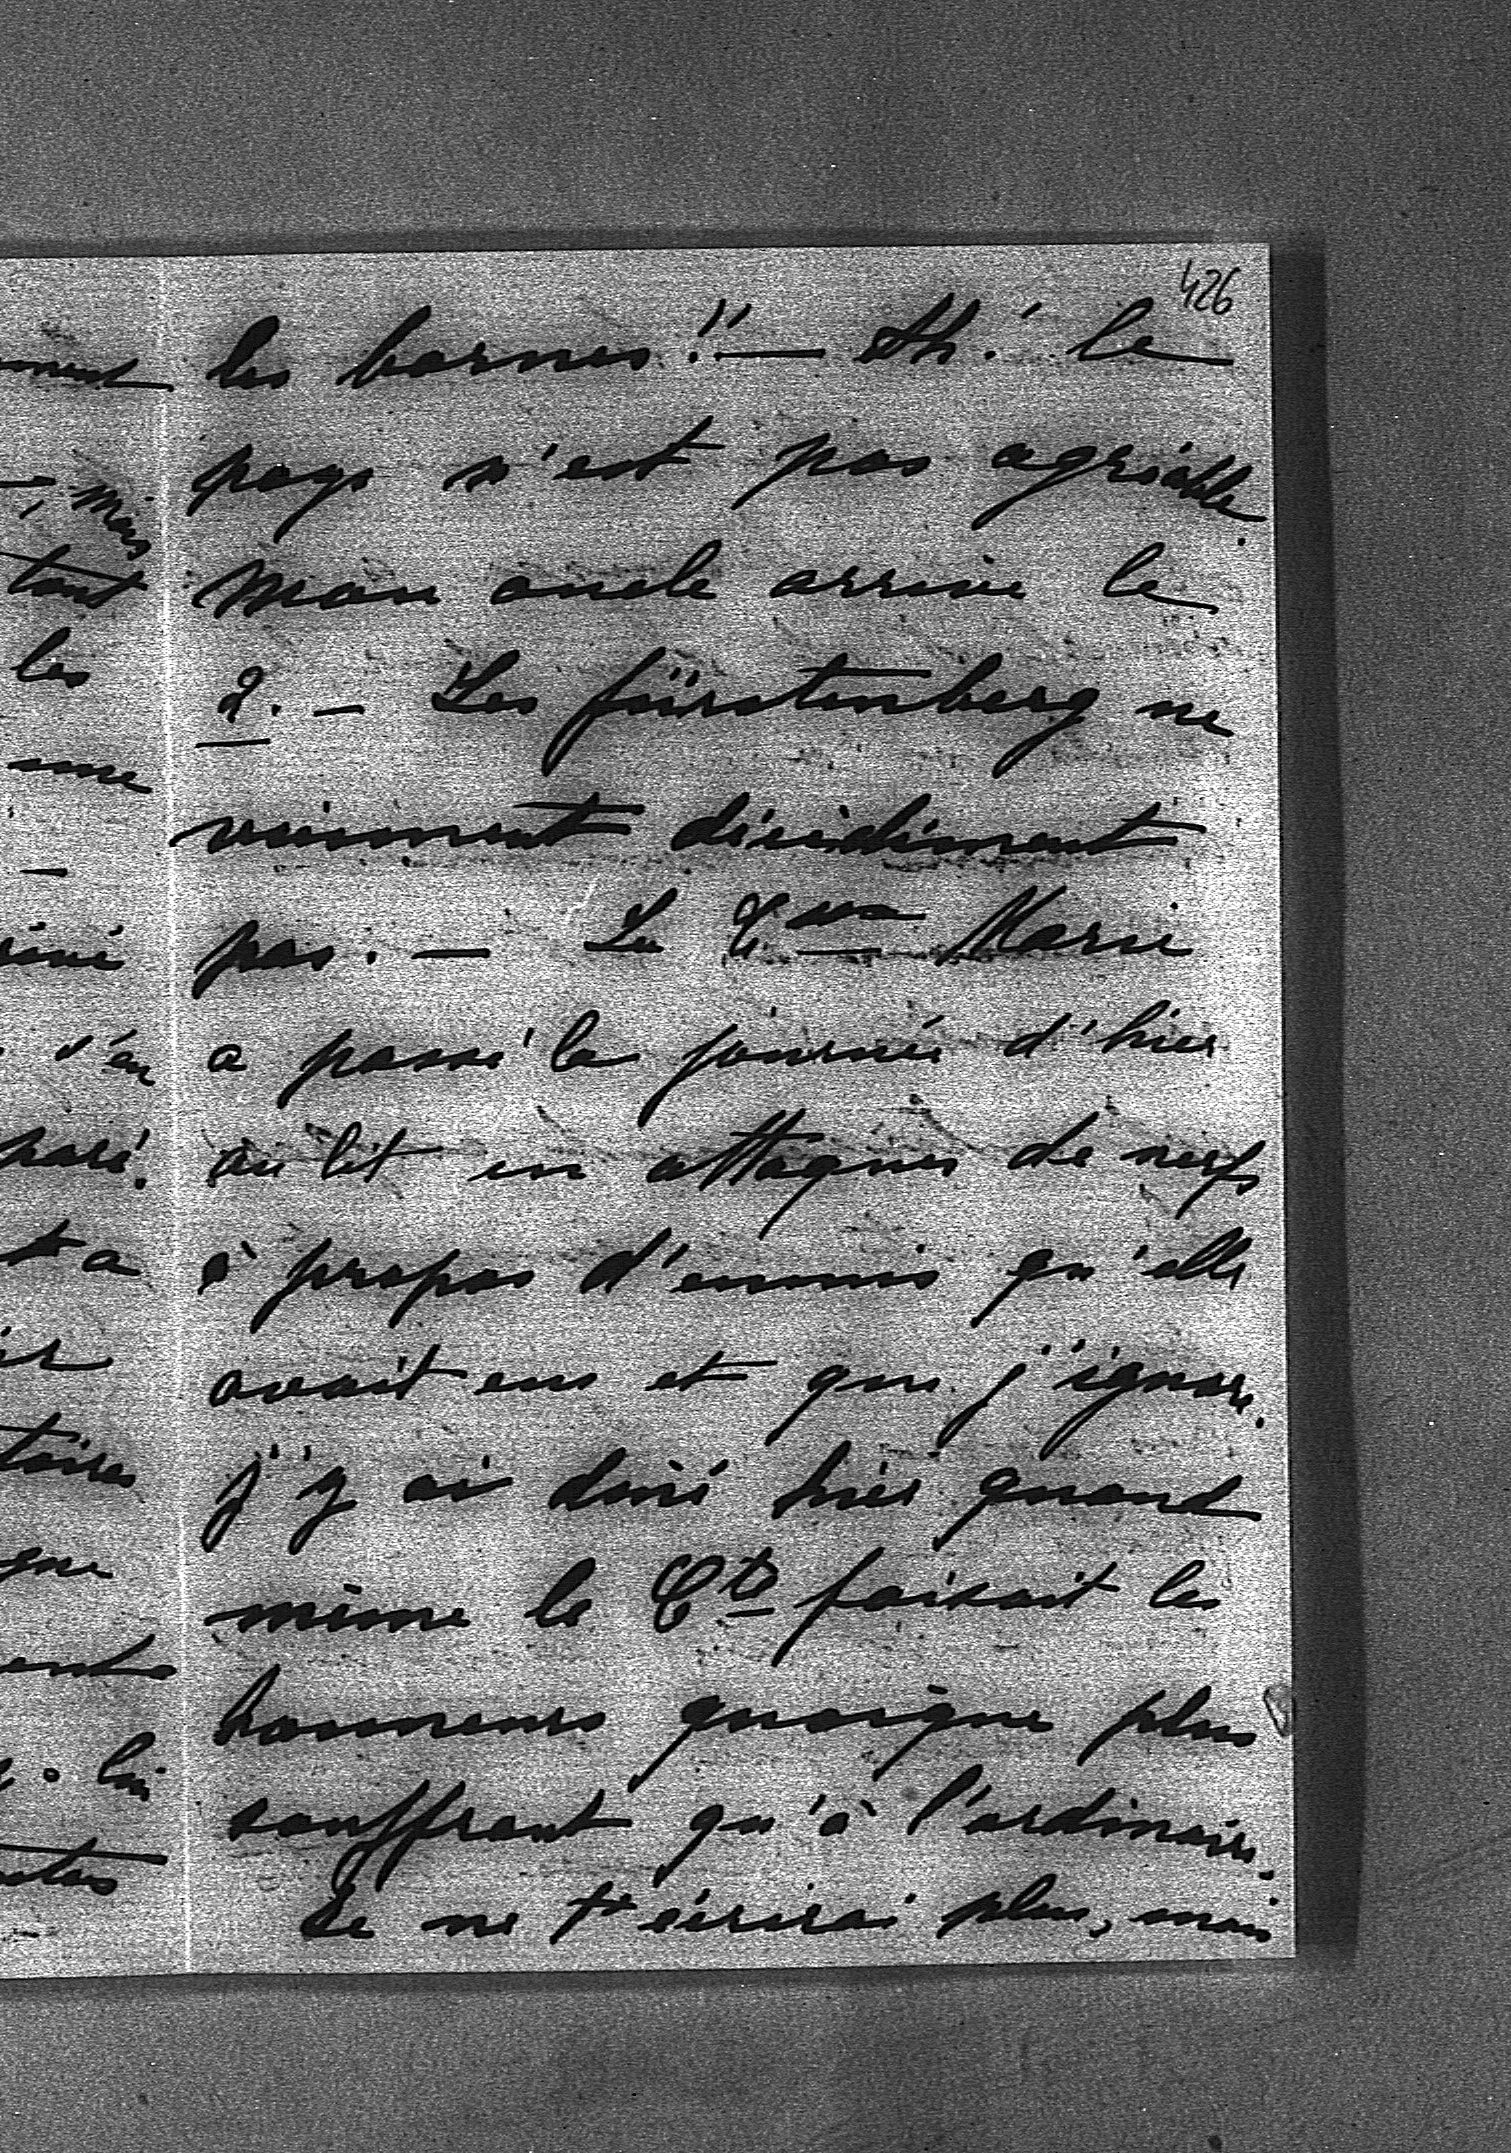 426
les bornes!! — Ah! le
pays n'est pas agréable.
Mon oncle arrive le
2. — Les Fürstenberg ne
viennent décidément
pas. — La Ctesse Marie
a passé la journée d'hier
au lit en attaques de nerfs
à propos d'ennuis qu'elle
avait eus et que j'ignore.
J'y ai diné hier quand
même le Cte faisait les
honneurs quoique plus
souffrant qu'à l'ordinaire.
Je ne t'écrirai plus, mais
mais
tant
les
une
s'en
paré.
ta